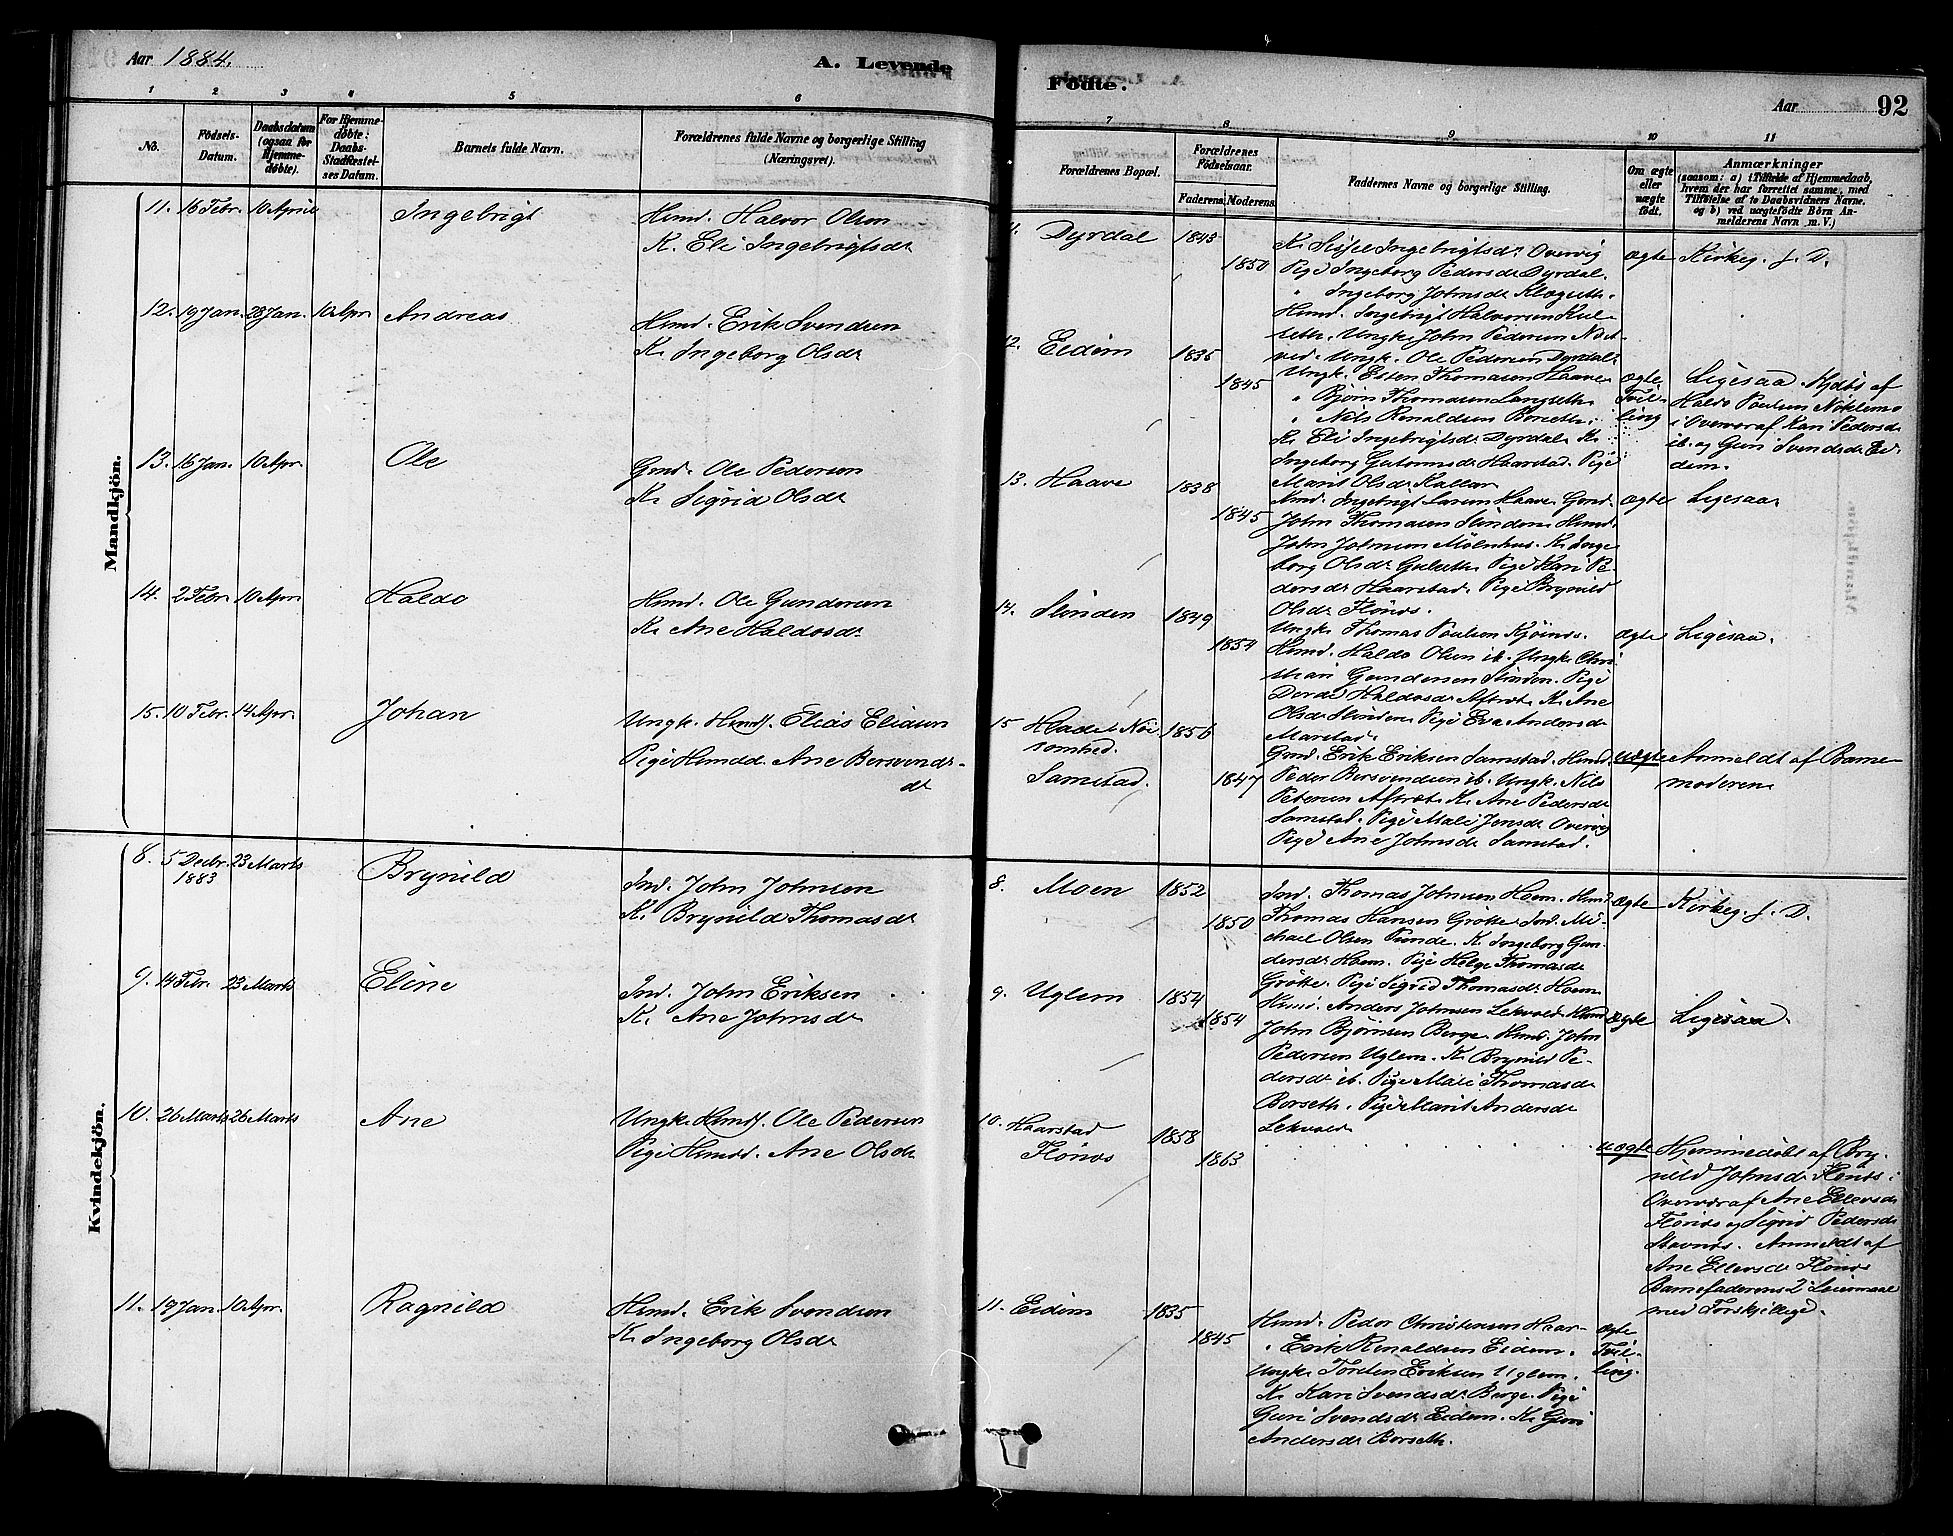 Aar 1884.
A. Levende
Födte.
Aar
92
1 2 3 4 5 6
7 8 9 10 11
No.
Födsels-
Datum.
Daabsdatum
(ogsaa for
Hjemme-
döbte).
For Hjemme-
döbte:
Daabs-
Stadfæstel-
ses Datum.
Barnets fulde Navn.
Forældrenes fulde Navne og borgerlige Stilling
(Næringsvei).
Forældrenes Bopæl.
Forældrenes
Födselsaar.
Faderens. Moderens.
Faddernes Navne og borgerlige Stilling.
Om ægte
eller
uægte
født.
Anmærkninger
(saasom: a) i Tilfælde af Hjemmedaab,
hvem der har forrettet samme, med
Tilföielse af to Daabsvidners Navne,
og b) ved uægtefödte Börn An-
melderens Navn m. V.)
Mandkjön.
11. 16 Febr. 10 April Ingebrigt
Hmd. Halvor Olsen
K. Eli Ingebrigtsdr
11. Dyrdal 1843
1850
K. Sissel Ingebrigtsdr Overvig
Pige Ingeborg Pedersdr Dyrdal.
" Ingeborg Johnsdr Klegseth.
Hmd. Ingebrigt Halvorsen Kul-
seth. Ungk. John Pedersen Nest-
ved. Ungk. Ole Pedersen Dyrdal.
ægte Kirkeg. f. D.
12. 19 Jan. 28 Jan. 10 Apr. Andreas
Hmd. Erik Svendsen
K. Ingeborg Olsdr
12. Eidem 1835
1845
Ungk. Esten Thomasen Haave
" Bjørn Thomasen Langseth.
" Nils Renaldsen Borseth.
K. Eli Ingebrigtsdr Dyrdal. K.
Ingeborg Gutormsdr Haarstad. Pige
Marit Olsdr Kallar
ægte
Tvil-
ling
Ligesaa. Hjdøbt af
Haldo Paulsen Nøklemo
i Overvær af Kari Pedersdr
ib. og Guri Svendsdr Ei-
dem.
13. 16 Jan. 10 Apr. Ole
Gmd. Ole Pedersen
K. Sigrid Olsdr
13. Haave 1838
1845
Hmd. Ingebrigt Larsen Haave. Gmd.
John Thomasen Slinden. Hmd.
John Johnsen Mølnhus. K. Inge-
borg Olsdr Gulseth. Pige Kari Pe-
dersdr Haarstad. Pige Brynild
Olsdr Flönes.
ægte Ligesaa.
14. 2 Febr. 10 Apr. Haldo
Hmd. Ole Gundersen
K. Ane Haldosdr
14. Slinden 1849
1854
Ungk. Thomas Paulsen Kjösnes.
Hmd. Haldo Olsen ib. Ungk. Chri-
stian Gundersen Slinden. Pige
Dorde Haldosdr Aftret. K. Ane
Olsdr Slinden. Pige Eva Andersdr
Marstad.
ægte Ligesaa.
15. 10 Febr. 14 Apr. Johan
Ungk. Hmdf. Elias Eliasen
Pige Hmdd. Ane Bersvends-
dr
15 Samstad.
1856
1847
Gmd. Erik Eriksen Samstad. Hmd.
Peder Bersvendsen ib. Ungk. Nils
Petersen Aftret. K. Ane Pedersdr
Samstad. Pige Mali Jonsdr Overvig
Pige Ane Johnsdr Samstad.
uægte Anmeldt af Barne-
moderen
Kvindekjön.
8. 5 Decbr. 1883 23 Marts Brynild
Ind. John Johnsen
K. Brynild Thomasdr
8. Moen 1852
1850
Ind. Thomas Johnsen Hoem. Hmd.
Thomas Hansen Grötte. Ind. Mi-
chael Olsen Sunde. K. Ingeborg Gun-
dersdr Hoem. Pige Helge Thomasdr
Grötte. Pige Sigrid Thomasdr Hoem.
ægte Kirkeg. f. D.
9. 14 Febr. 23 Marts Eline
Ind. John Eriksen
K. Ane Johnsdr
9. Uglem 1854
1854
Hmd. Anders Johnsen Lekvold. Hmd
John Bjørnsen Berge. Hmd. John
Pedersen Uglem. K. Brynild Pe-
dersdr ib. Pige Mali Thomasdr
Borseth. Pige Marit Andersdr
Lekvold
ægte Ligesaa.
10. 26 Marts 26 Marts Ane
Ungk. Hmdf. Ole Pedersen
Pige Hmdd. Ane Olsdr
10. Haarstad
Flönes
1858
1863
uægte Hjemmedøbt af Bry-
nild Johnsdr Flönes i
Overvær af Ane Ellevsdr
Flönes og Sigrid Pedersdr
Stavnes. Anmeldt af
Ane Ellevsdr Flönes
Barnefaderens 2 Leiermaal
med Forskjellige.
11. 19 Jan. 10 Apr. Ragnild
Hmd. Erik Svendsen
K. Ingeborg Olsdr
11. Eidem 1835
1845
Hmd. Peder Christensen Haar-
" Erik Renaldsen Eidem.
Ungk. Torsten Eriksen Uglem.
K. Kari Svendsdr Berge. Pige
Guri Svendsdr Eidem. K. Guri
Andersdr Borseth.
ægte
Tvil-
ling.